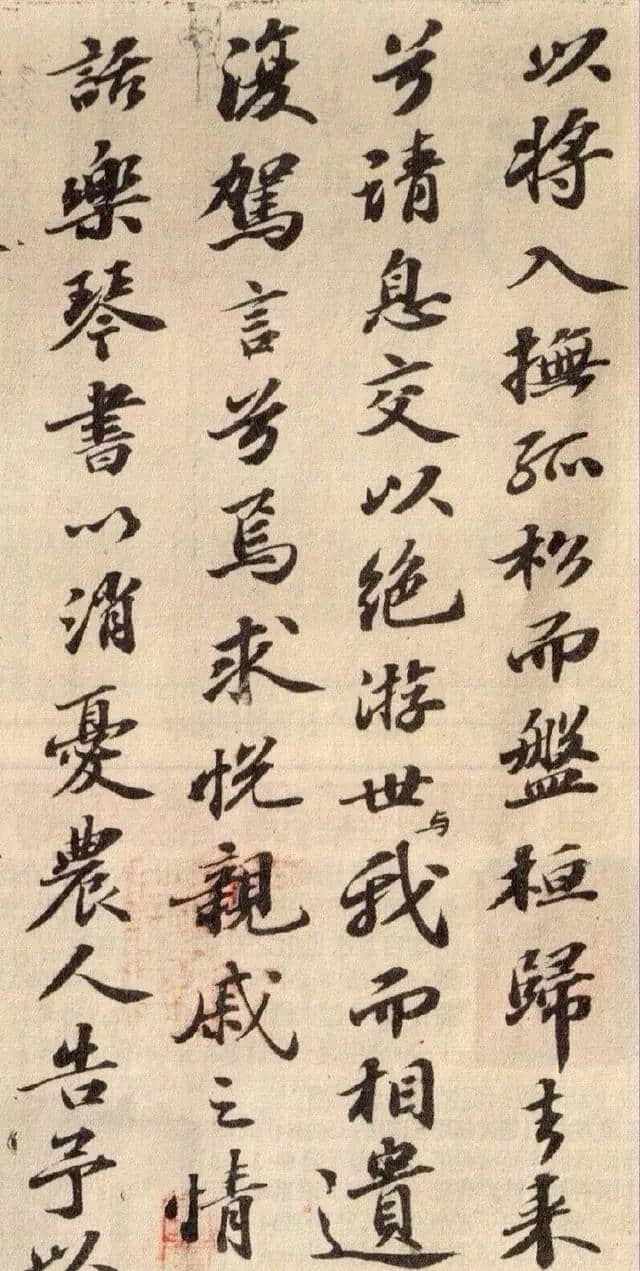 以将入撫孤松而盤桓歸去来
兮请息交以绝游世与我而相遺
復駕言兮焉求悦親戚之情
話樂琴書以消憂農人告予以